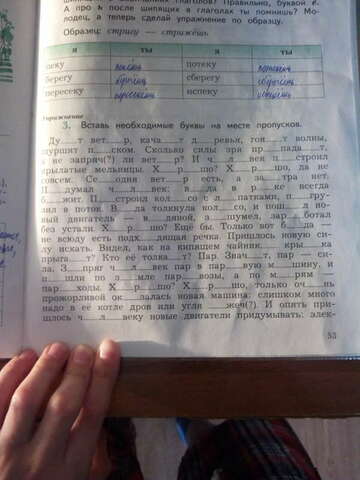 шипящими согласными глаголов? Правильно, буквой е.
А про ь после шипящих в глаголах ты помнишь? Мо-
лодец, а теперь сделай упражнение по образцу.
Образец: стригу — стрижёшь.
я ты я ты
пеку печёшь потеку потечёшь
берегу бережёшь сберегу сбережёшь
пересеку пересечёшь испеку испечёшь
Упражнение
3. Вставь необходимые буквы на месте пропусков.
Ду__т вет__р, кача__т д__ревья, гон__т волны,
шуршит п__ском. Сколько силы зря пр__пада__т,
а не запряч(?) ли вет__р? И ч__л__век п__строил
крылатые мельницы. Х__р__шо? Х__р__шо, да не
совсем. Се__одня вет__р есть, а за__тра нет.
П__думал ч__л__век: в__да в р__ке всегда
б__жит. П__строил кол__со с л__патками, п__гру-
зил в поток. В__да толкнула кол__со, и пош__л но-
вый двигатель — в__дяной, з__шумел, зар__ботал
без устали. Х__р__шо? Ещё бы! Только вот б__да —
не всюду есть подх__дящая речка. Пришлось новую си-
лу искать. Видел, как на кипящем чайник__ кры__ка
прыга__т? Кто её толка__т? Пар. Знач__т, пар — си-
ла. З__пряг ч__л__век пар в пар__вую м__шину, и
п__шли по з__мле пар__возы, а по м__рям —
пар__ходы. Х__р__шо? Х__р__шо, только оч__нь
прожорливой ок__залась новая машина: слишком много
надо в её котле дров или угля __жеч(?). И опять при-
шлось ч__л__веку новые двигатели придумывать: элек-
53